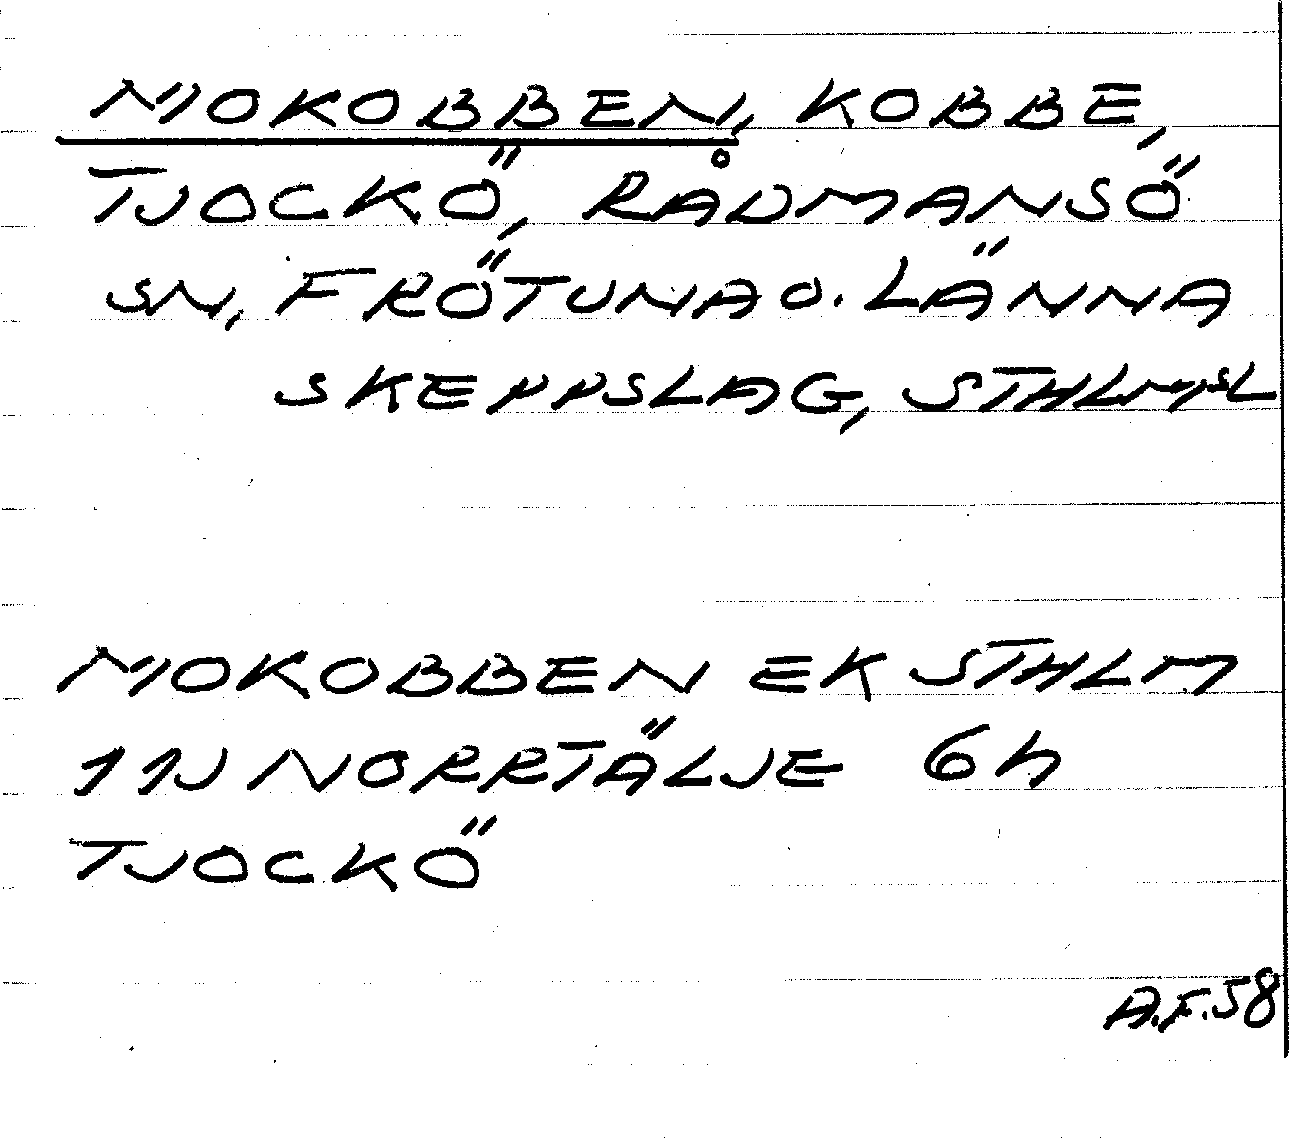 MOKOBBEN, KOBBE,
TJOCKÖ, RÅDMANSÖ
SN, FRÖTUNA O. LÄNNA
SKEPPSLAG, STHLMS L
MOKOBBEN EK STHLM
11J NORRTÄLJE 6h
TJOCKÖ
A.F. 58